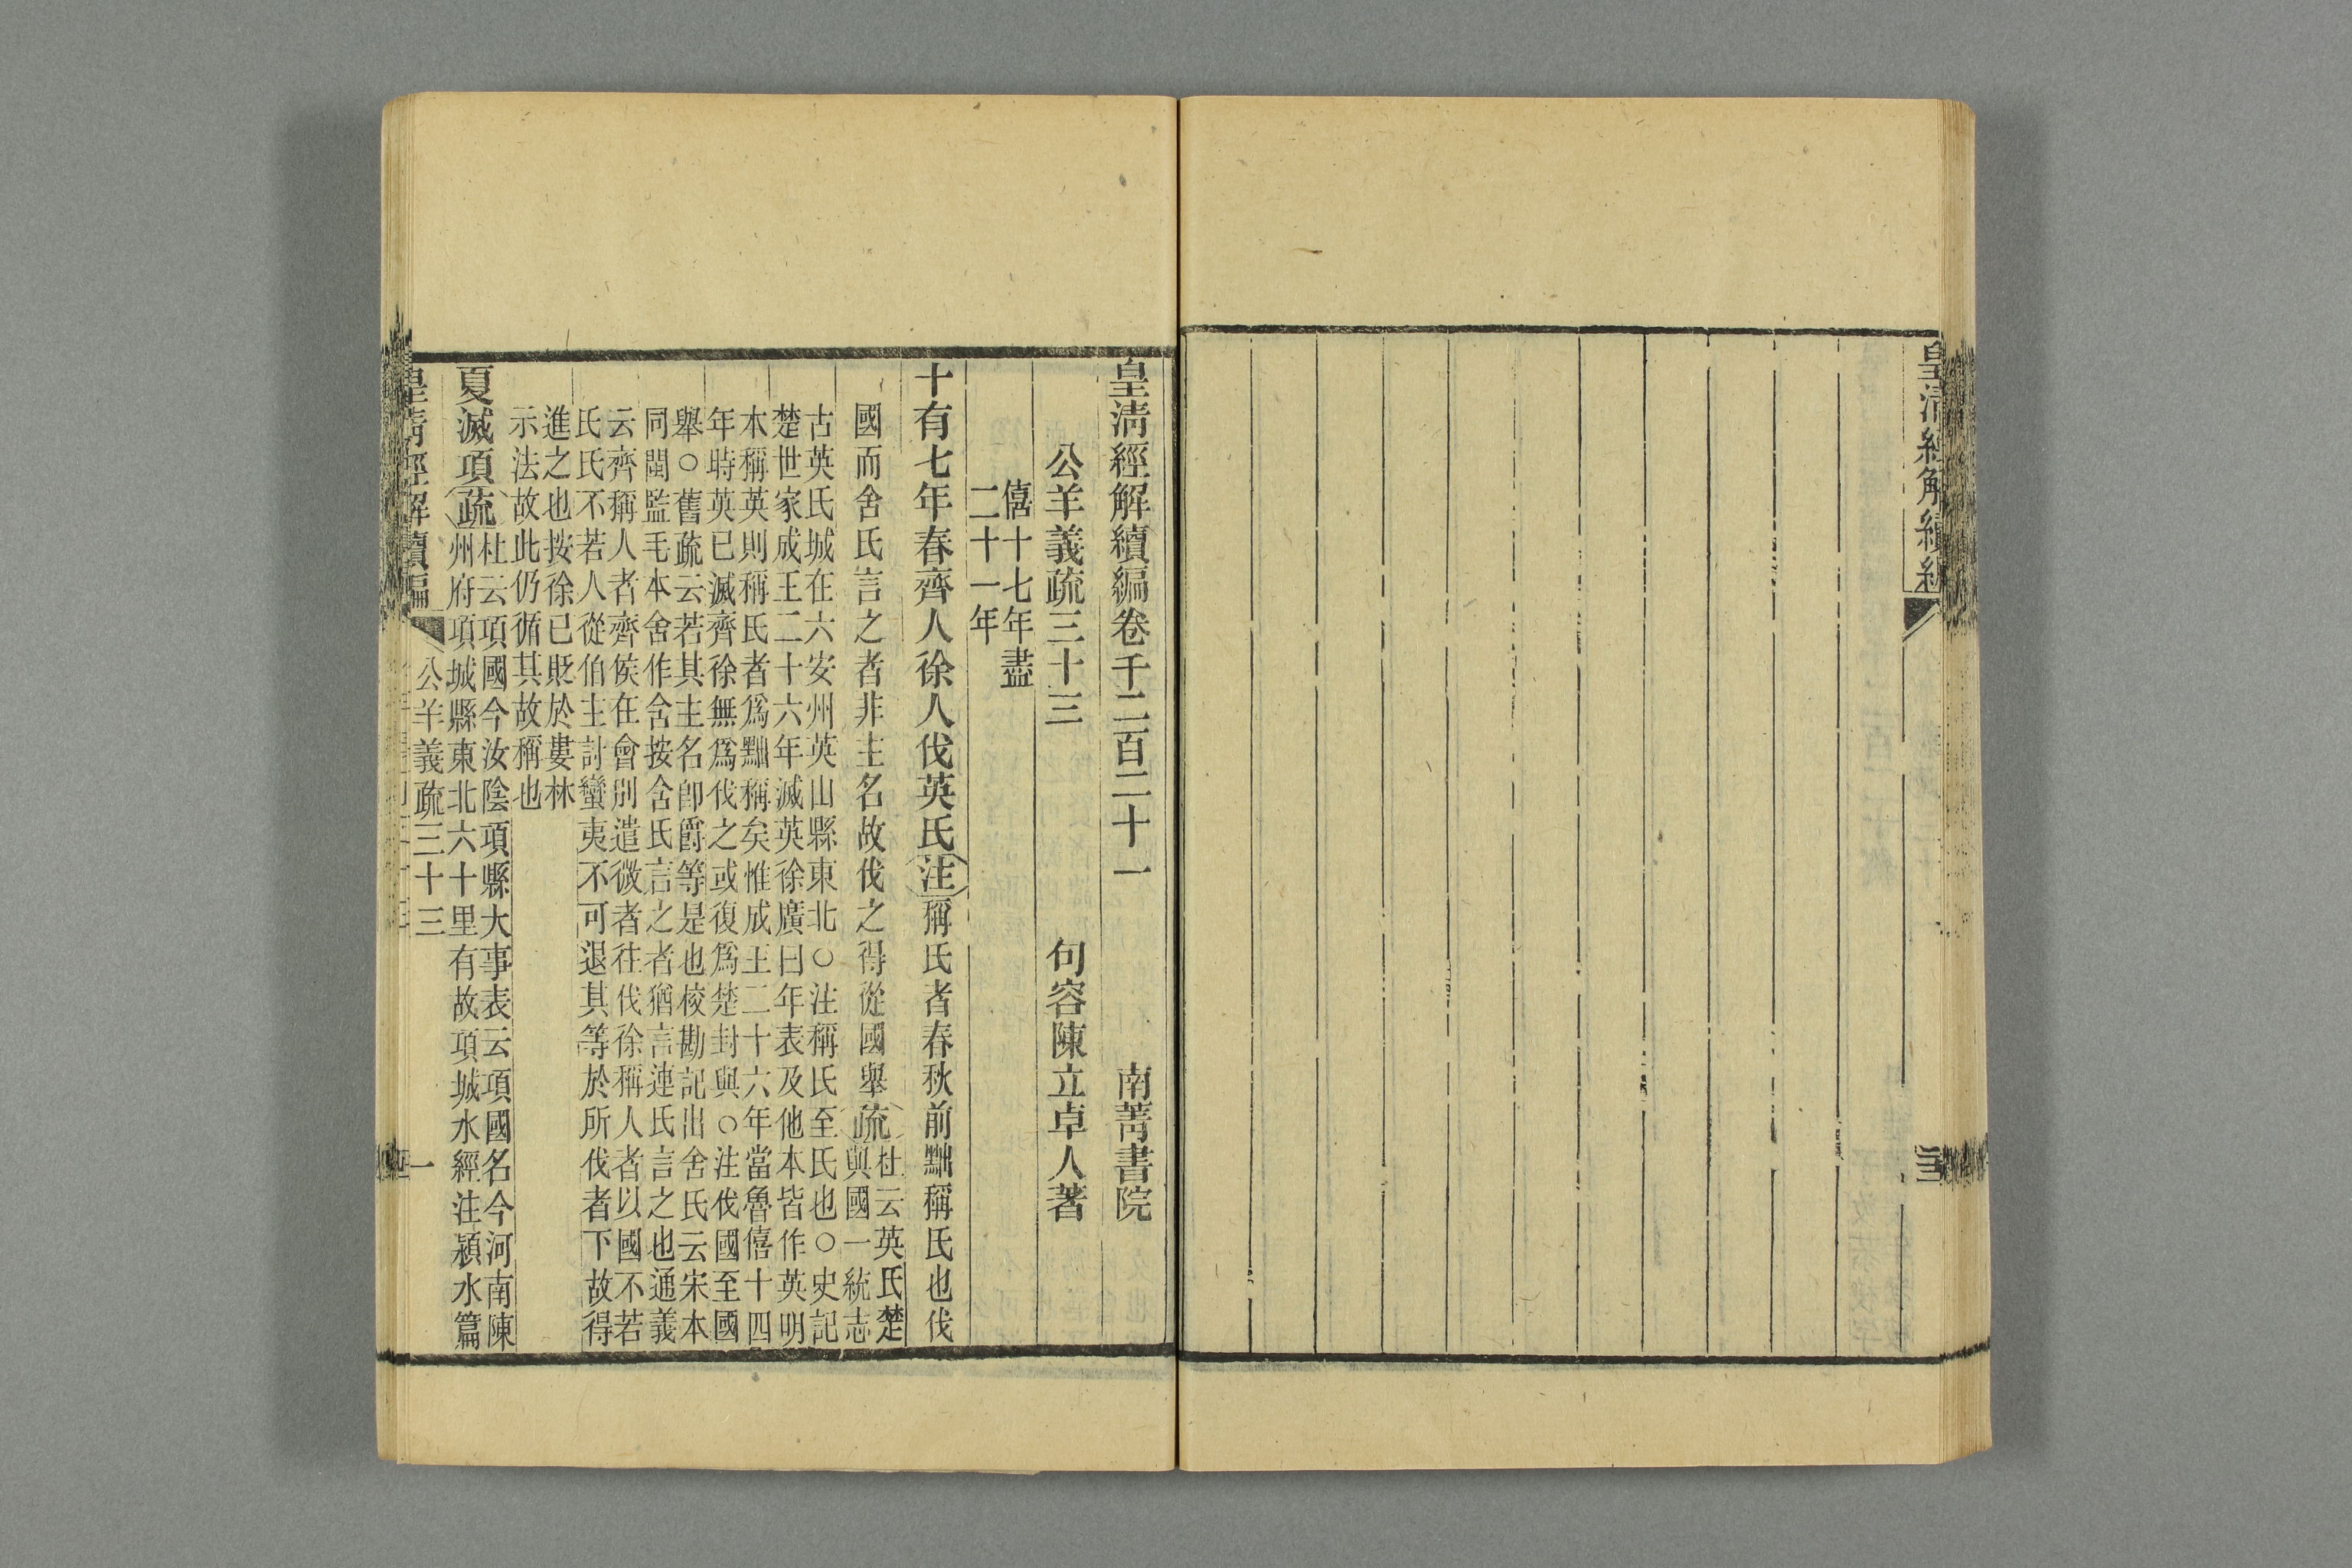 皇清經解續編
三
皇清經解續編卷千二百二十一　南菁書院
公羊義疏三十三　句容陳立卓人著
僖十七年盡
二十一年
十有七年春齊人徐人伐英氏注稱氏者春秋前黜稱氏也伐
國而舍氏言之者非主名故伐之得從國舉疏
杜云英氏楚
與國一統志
古英氏城在六安州英山縣東北○注稱氏至氏也○史記
楚世家成王二十六年滅英徐廣曰年表及他本皆作英明
本稱英則稱氏者爲黜稱矣惟成王二十六年當魯僖十四
年時英已滅齊徐無爲伐之或復爲楚封與○注伐國至國
舉○舊疏云若其主名卽爵等是也校勘記出舍氏云宋本
同閩監毛本舍作舎按舍氏言之者猶言連氏言之也通義
云齊稱人者齊侯在會別遣微者往伐徐稱人者以國不若
氏氏不若人從伯主討蠻夷不可退其等於所伐者下故得
進之也按徐已貶於婁林
示法故此仍循其故稱也
夏滅項疏
杜云項國今汝陰項縣大事表云項國名今河南陳
州府項城縣東北六十里有故項城水經注潁水篇
皇清經解續編　公羊義疏三十三　一